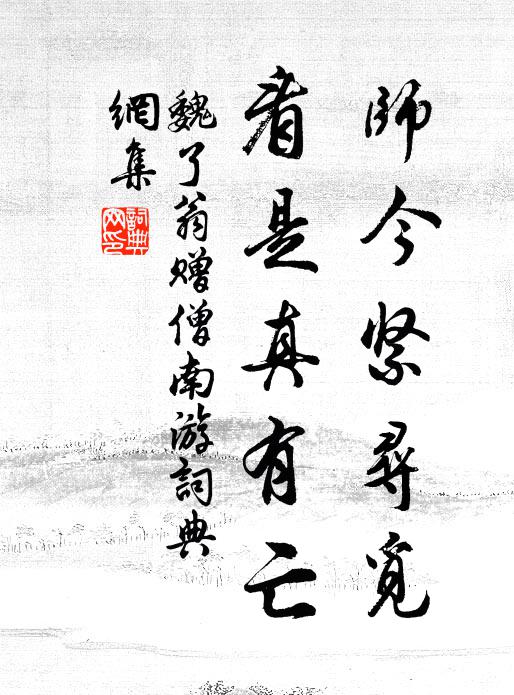 師今緊尋覓
看是真有亡
魏了翁贈僧南游詞典
網集
詞典
网印